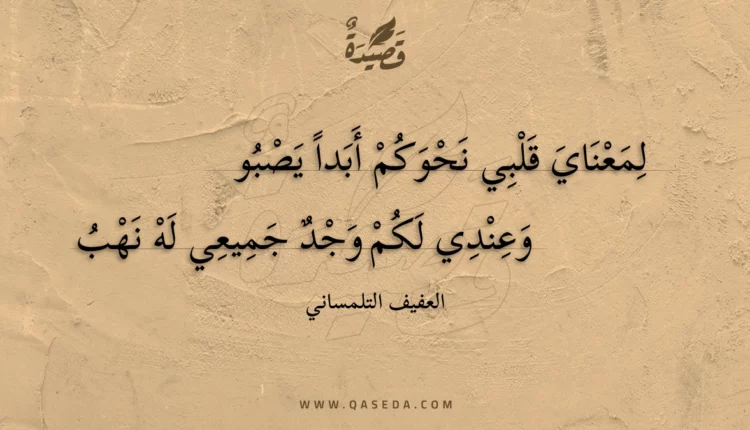 قَصِيدَةٌ
لِمَعْنَايَ قَلْبِي نَحْوَكُمْ أَبَداً يَصْبُو
وَعِنْدِي لَكُمْ وَجْدٌ جَمِيعِي لَهْ نَهْبُ
العفيف التلمساني
WWW.QASEDA.COM